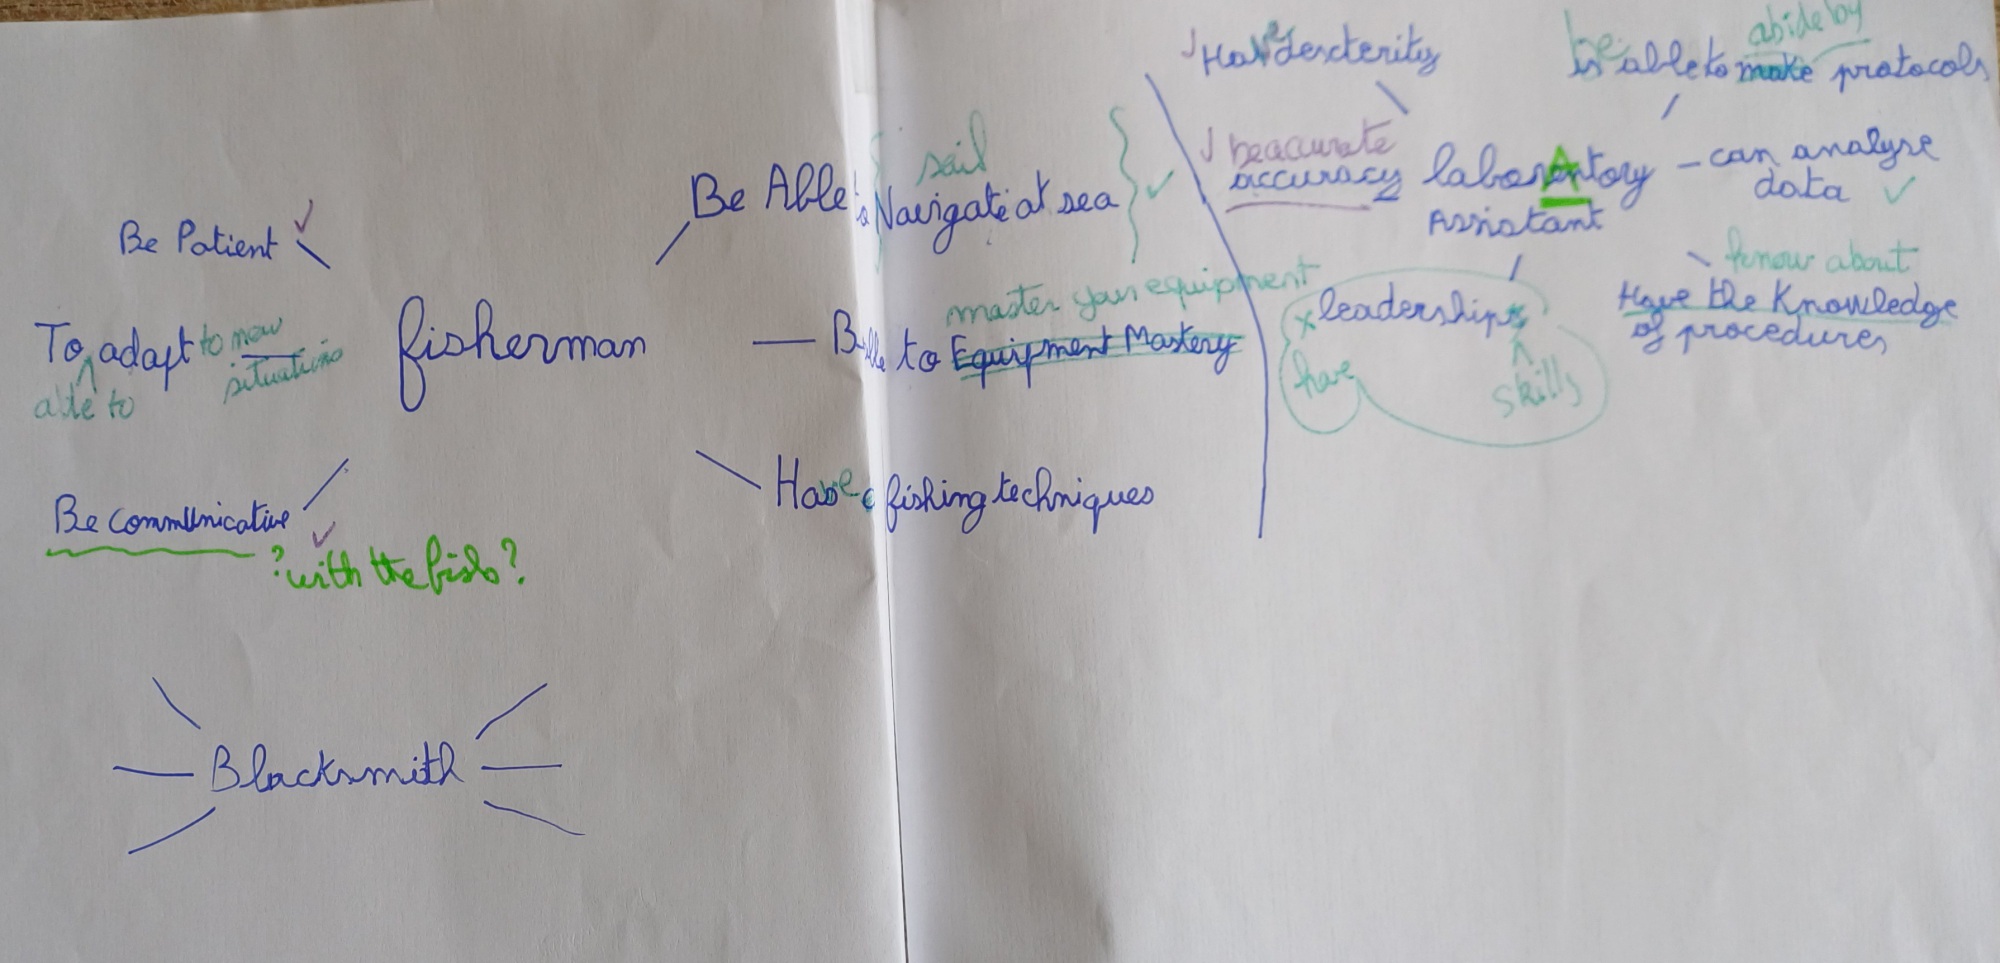 Be Patient
To adapt to new
able to
situations
Be communicative
? with the fish ?
fisherman
sail
Be Able to Navigate at sea
master your equipment
to Equipment Mastery
Have fishing techniques
Blacksmith
Have dexterity
be accurate
accuracy
laboratory
Assistant
abide by
be able to make protocols
can analyse
data
know about
Have the Knowledge
of procedures
leadership
have
skills